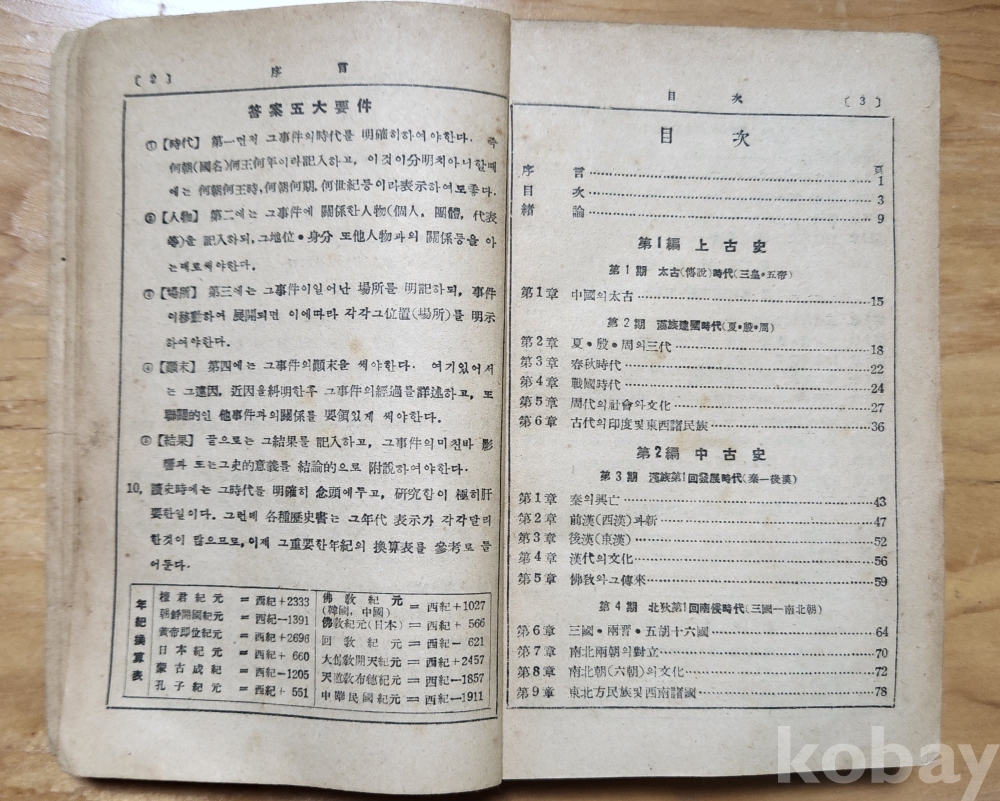 〔2〕 序 言
答案五大要件
①【時代】 第一먼적 그事件의時代를 明確히하여야한다. 즉
何朝(國名)何王何年이라記入하고, 이것이分明치아니할때
에는 何朝何王時, 何朝何期, 何世紀등이라表示하여도좋다.
②【人物】 第二에는 그事件에 關係한人物(個人, 團體, 代表
等)을 記入하되, 그地位·身分 또他人物과의 關係등을 아
는대로써야한다.
③【場所】 第三에는 그事件이일어난 場所를 明記하되, 事件
이移動하여 展開되면 이에따라 각각그位置(場所)를 明示
하여야한다.
④【顚末】 第四에는 그事件의顚末을 써야한다. 여기있어서
는 그遠因, 近因을糾明한후 그事件의經過를詳述하고, 또
聯關的인 他事件과의關係를 要領있게 써야한다.
⑤【結果】 끝으로는 그結果를記入하고, 그事件의미친바 影
響과 또는그史的意義를 結論的으로 附說하여야한다.
10. 讀史時에는 그時代를 明確히 念頭에두고, 硏究함이 極히肝
要한일이다. 그런데 各種歷史書는 그年代 表示가 각각달리
한것이 많으므로, 이제 그重要한年紀의 換算表를 參考로 들
어둔다.
年紀換算表
檀君紀元 = 西紀+2333
朝鮮開國紀元 = 西紀−1391
黃帝卽位紀元 = 西紀+2696
日本紀元 = 西紀+ 660
蒙古成紀 = 西紀−1205
孔子紀元 = 西紀+ 551
佛敎紀元(韓國, 中國) = 西紀+1027
佛敎紀元(日本) = 西紀+ 566
回敎紀元 = 西紀− 621
大倧敎開天紀元 = 西紀+2457
天道敎布德紀元 = 西紀−1857
中華民國紀元 = 西紀−1911
目 次 〔3〕
目 次
頁
序 言 1
目 次 3
緖 論 9
第1編 上古史
第1期 太古(傳說)時代(三皇·五帝)
第1章 中國의太古 15
第2期 漢族建國時代(夏·殷·周)
第2章 夏·殷·周의三代 18
第3章 春秋時代 22
第4章 戰國時代 24
第5章 周代의社會와文化 27
第6章 古代의印度및東西諸民族 36
第2編 中古史
第3期 漢族第1回發展時代(秦—後漢)
第1章 秦의興亡 43
第2章 前漢(西漢)과新 47
第3章 後漢(東漢) 52
第4章 漢代의文化 56
第5章 佛敎와그傳來 59
第4期 北狄第1回南侵時代(三國—南北朝)
第6章 三國·兩晋·五胡十六國 64
第7章 南北兩朝의對立 70
第8章 南北朝(六朝)의文化 72
第9章 東北方民族및西南諸國 78
kobay